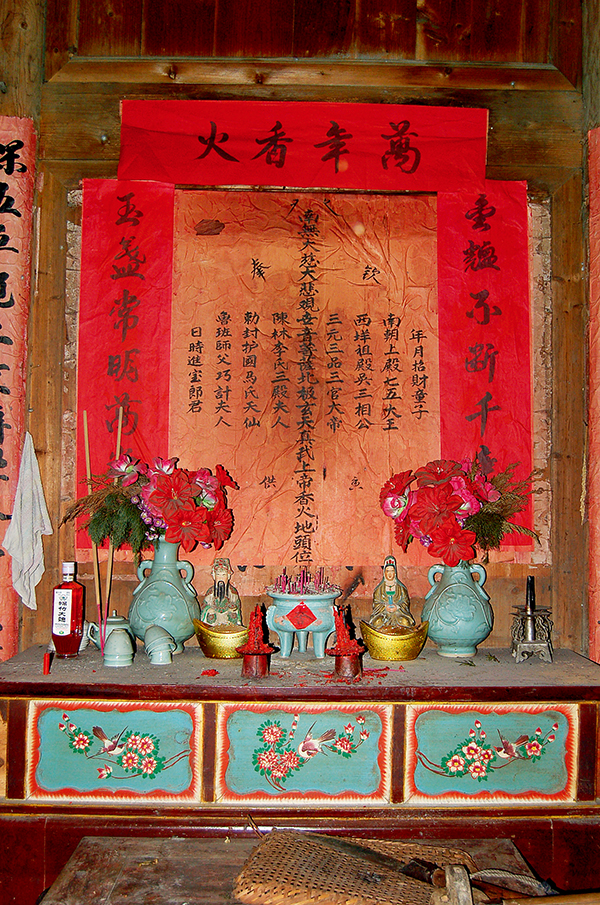 萬年香火
金爐不斷千
年月招財童子
南朝上殿七五大王
西洋祖殿吳三相公
三元三品三官大帝
欽
南無大慈大悲觀世音菩薩地极玄天真武上帝香火地頭位
供
陳林李氏三殿夫人
勅封护國馬氏天仙
魯班師父巧計夫人
日時進宝郎君
玉盏常明萬